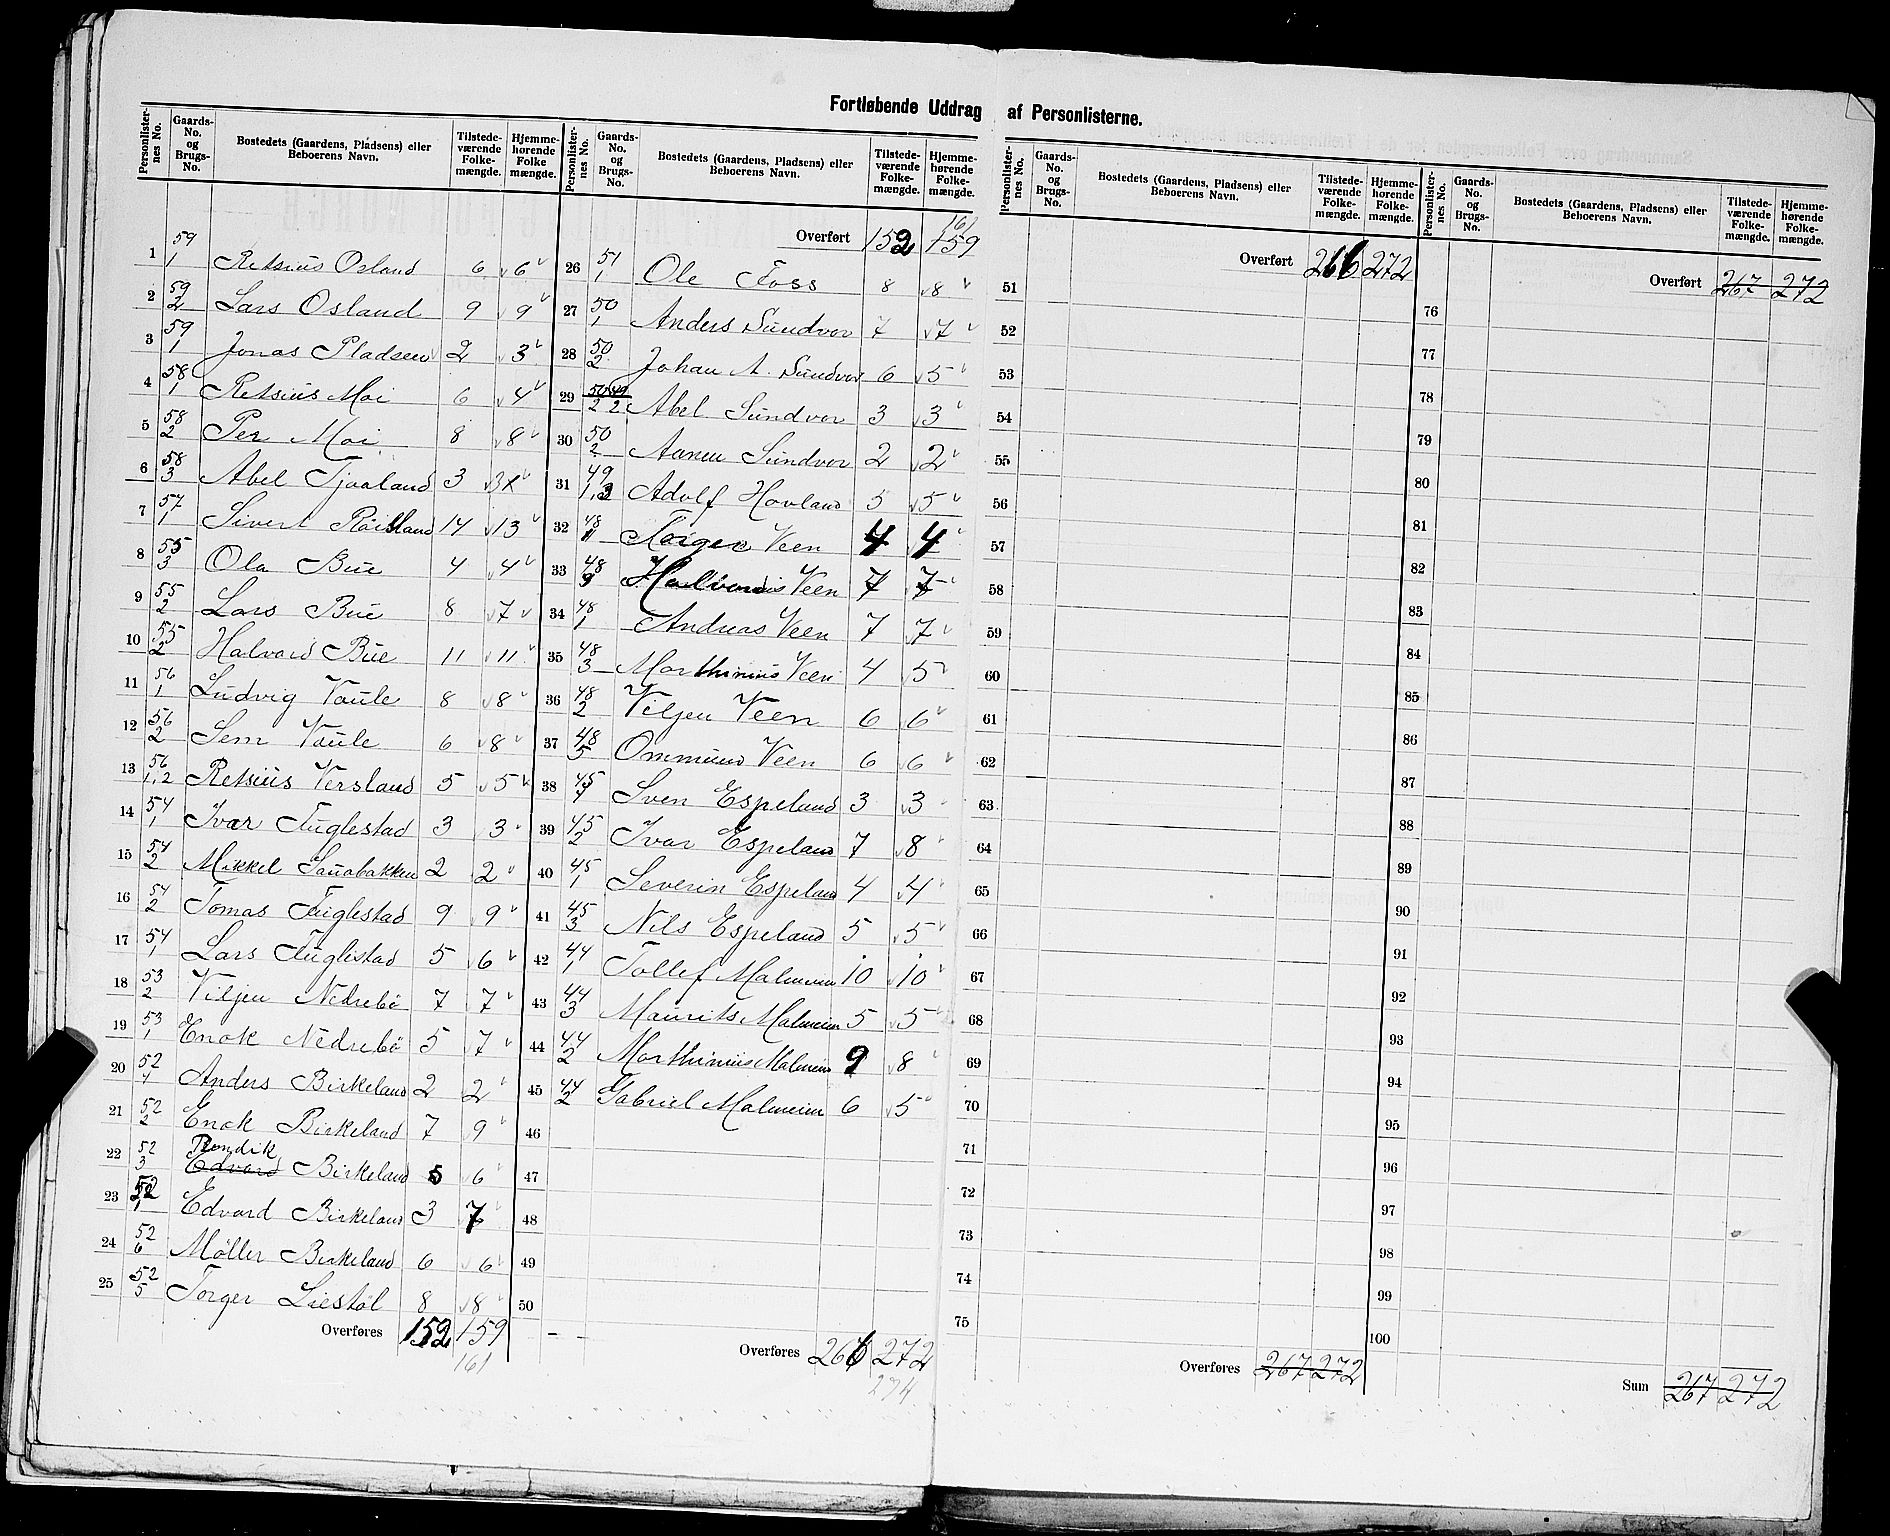 Fortløbende Uddrag af Personlisterne.
Personlister-nes No. | Gaards-No. og Brugs-No. | Bostedets (Gaardens, Pladsens) eller Beboerens Navn. | Tilstede-værende Folke-mængde. | Hjemme-hørende Folke mængde.
1 59/1 Retsius Osland 6 6
2 59/2 Lars Osland 9 9
3 59/1 Jonas Pladsen 2 3
4 58/1 Retsius Moi 6 4
5 58/2 Per Moi 8 8
6 58/3 Abel Tjaaland 3
7 57/1 Sivert 14 13
8 55/3 Ola Bue 4 4
9 55/2 Lars Bue 8 7
10 55/2 Halvard Bue 11 11
11 56/1 Ludvig Vaule 8 8
12 56/2 Sem Vaule 6 8
13 56/1,2 Retsius Versland 5 5
14 54/1 Ivar Fuglestad 3 3
15 54/2 Mikkel Sauabakken 2 2
16 54/2 Tomas Fuglestad 9 9
17 54/1 Lars Fuglestad 5 6
18 53/2 Viljen Nedrebø 7 7
19 53/1 Enok Nedrebø 5 7
20 52/1 Anders Birkeland 2 2
21 52/2 Enok Birkeland 7 9
22 52/3 Rendik Edvard Birkeland 5 6
23 52/1 Edvard Birkeland 3 7
24 52/6 Møller Birkeland 6 6
25 52/5 Torger Liestøl 8 8
Overføres 152 159
161
Personlister-nes No. | Gaards-No. og Brugs-No. | Bostedets (Gaardens, Pladsens) eller Beboerens Navn. | Tilstede-værende Folke-mængde. | Hjemme-hørende Folke-mængde.
161
Overført 152 159
26 51/1 Ole Foss 8 8
27 50/1 Anders Sundvor 7 7
28 50/2 Johan A. Sundvor 6 5
29 50/2 49/2 Abel Sundvor 3 3
30 50/2 Aanen Sundvor 2 2
31 49/1,3 Adolf Hovland 5 5
32 48 Torger Veen 4 4
33 48/9 Veen 7 7
34 48/1 Andreas Veen 7 7
35 48/3 Marthinius Veen 4 5
36 48/2 Viljen Veen 6 6
37 48/5 Ommund Veen 6 6
38 45 Sven Espeland 3 3
39 45/2 Ivar Espeland 7 8
40 45/1 Severin Espeland 4 4
41 45/3 Nils Espeland 5 5
42 44/1 Tollef Malmeim 10 10
43 44/3 Maurits Malmeim 5 5
44 44/2 Marthinius Malmeim 9 8
45 44/2 Gabriel Malmeim 6 5
46
47
48
49
50
Overføres 266 272
274
Personlister-nes No. | Gaards-No. og Brugs-No. | Bostedets (Gaardens, Pladsens) eller Beboerens Navn. | Tilstede-værende Folke-mængde. | Hjemme-hørende Folke-mængde.
Overført 266 272
51
52
53
54
55
56
57
58
59
60
61
62
63
64
65
66
67
68
69
70
71
72
73
74
75
Overføres 267 272
Personlister-nes No. | Gaards-No. og Brugs-No. | Bostedets (Gaardens, Pladsens) eller Beboerens Navn. | Tilstede-værende Folke-mængde. | Hjemme-hørende Folke-mængde.
Overført 267 272
76
77
78
79
80
81
82
83
84
85
86
87
88
89
90
91
92
93
94
95
96
97
98
99
100
Sum 267 272